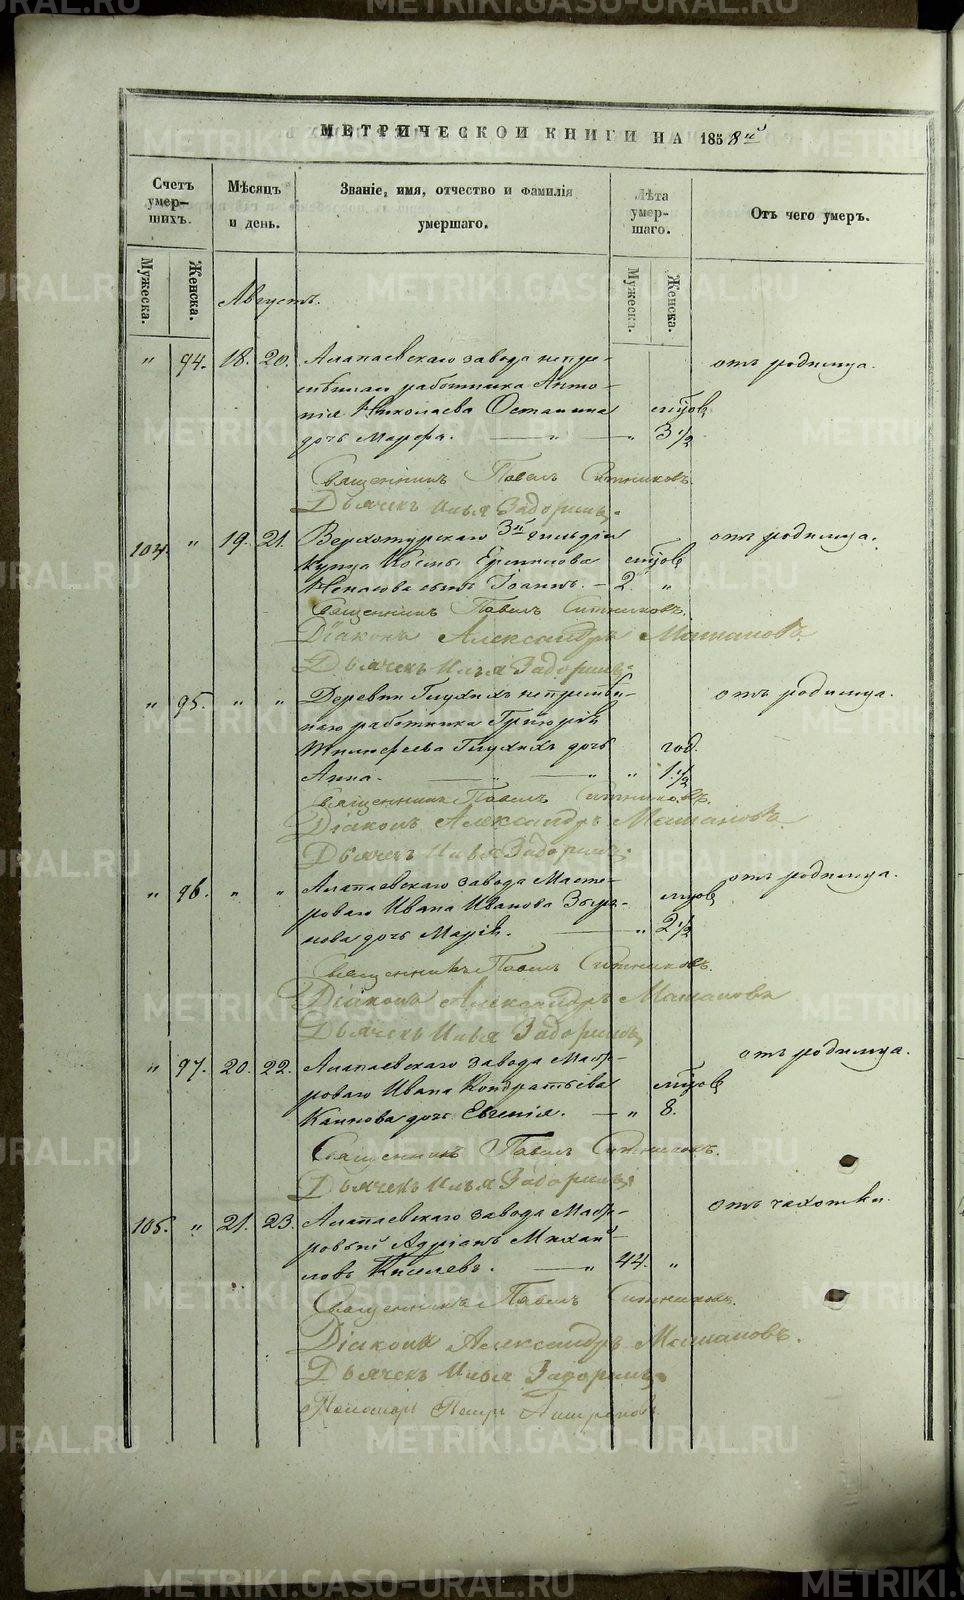 МЕТРИЧЕСКОЙ КНИГИ НА 1858й
Счетъ умер-шихъ.
Мѣсяцъ и день.
Званіе, имя, отчество и фамилія умершаго.
Лѣта умер-шаго.
Отъ чего умеръ.
Мужеска.
Женска.
Мужеска.
Женска.
Августъ.
" 94. 18. 20. Алапаевскаго завода непре- отъ родимца.
мѣннаго работника Анто-
нія Николаева Останина мѣсяцов
дочь Марѳа. " " 3 1/2
Священникъ Павелъ Ситниковъ.
Дьячекъ Илья Задоринъ.
104. " 19. 21. Верхотурскаго 3й гильдіи отъ родимца.
купца Космы Ермилова мѣсяцов
сынъ Іоаннъ. - 2. "
Священникъ Павелъ Ситниковъ.
Діаконъ Александръ
Дьячекъ Илья Задоринъ
" 95. " " Деревни Глухихъ непремѣн- отъ родимца.
наго работника Григорія
Глухихъ дочь год.
Анна. " " 1 1/2
Священникъ Павелъ Ситниковъ.
Діаконъ Александръ
Дьячекъ Илья Задоринъ
" 96. " " Алапаевскаго завода Масте- отъ родимца.
роваго Ивана Иванова Зыря- мѣсяцов
нова дочь Марія. " 2 1/2
Священникъ Павелъ Ситниковъ.
Діаконъ Александръ
Дьячекъ Илья Задоринъ
" 97. 20. 22. Алапаевскаго завода Масте- отъ родимца.
роваго Ивана Кондратьева мѣсяцов
дочь Евгенія. - " 8.
Священникъ Павелъ Ситниковъ.
Дьячекъ Илья Задоринъ
105. " 21. 23. Алапаевскаго завода Масте- отъ чахотки.
ровый Адріанъ Михай-
ловъ Киселевъ. " 44. "
Священникъ Павелъ Ситниковъ.
Діаконъ Александръ
Дьячекъ Илья Задоринъ
Пономарь Петръ
METRIKI.GASO-URAL.RU